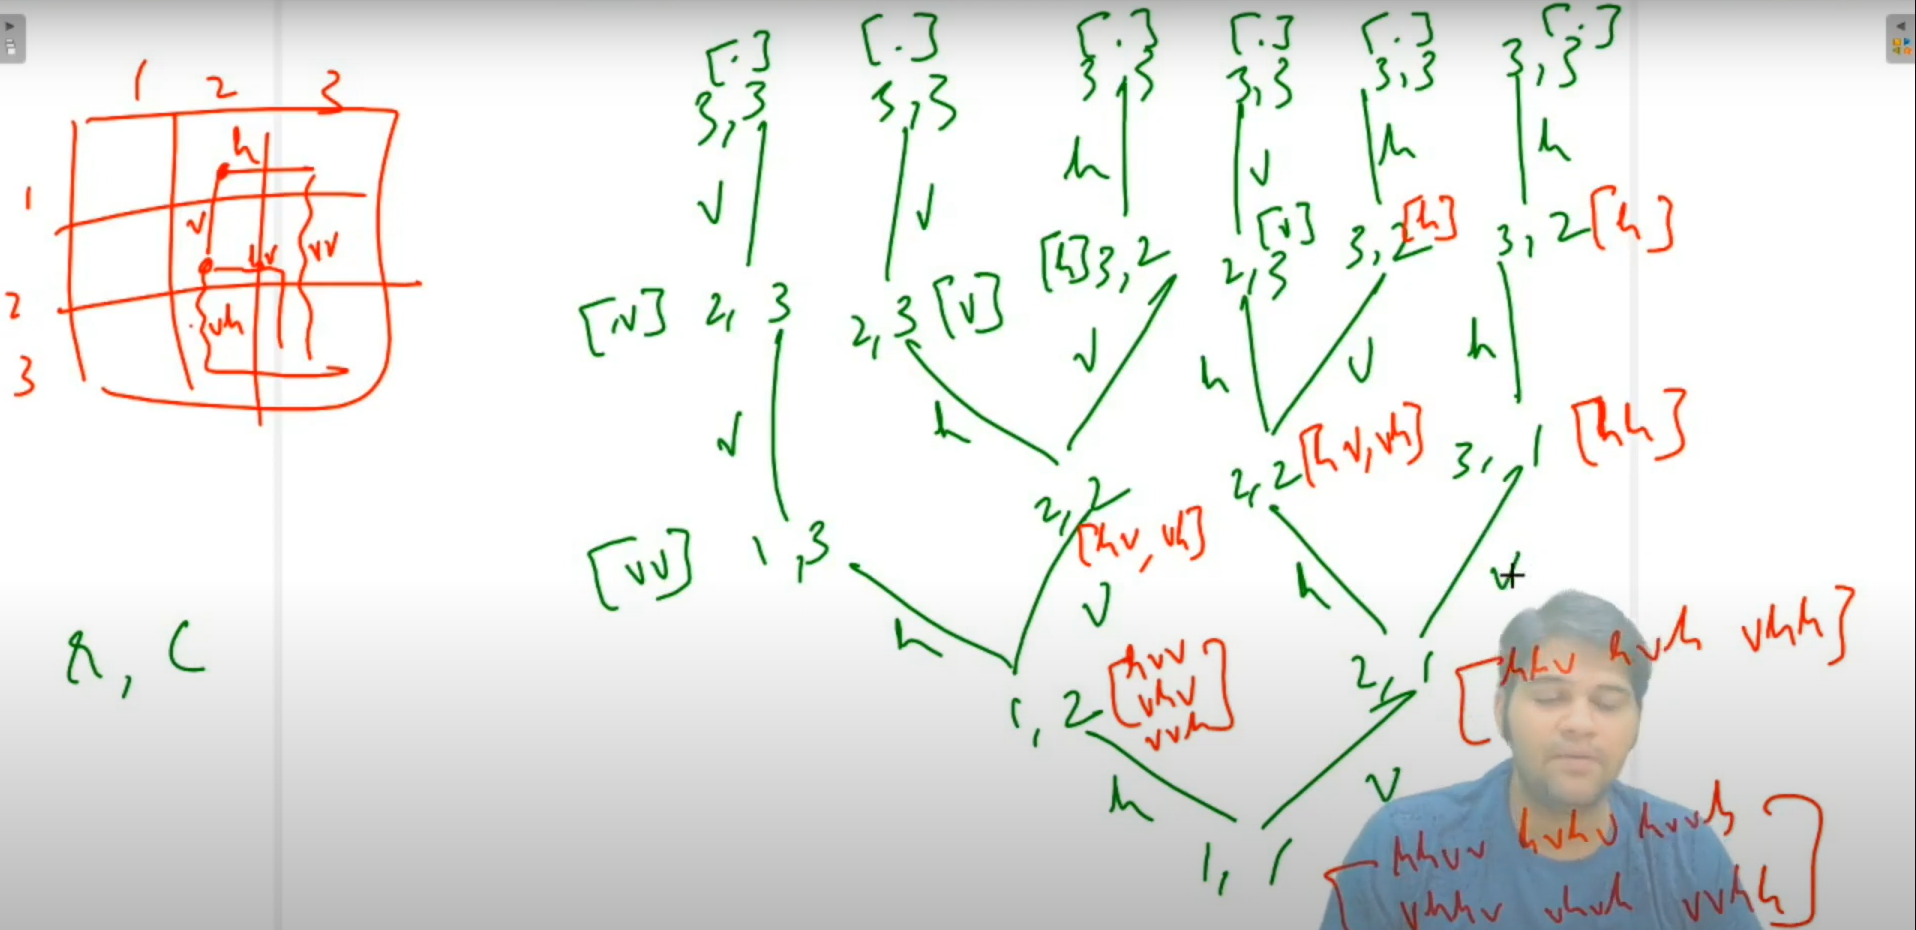 1 2 3
h
1
v
hv
vv
2
vh
3
r, c
[.] [.] [.] [.] [.] [.]
3,3 3,3 3,3 3,3 3,3 3,3
v v h v h h
[v] 2, 3 2,3 [v] [h] 3,2 2,3 [v] 3,2 [h] 3,2 [h]
v h v h v h
[vv] 1,3 2,2 [hv, vh] 2,2 [hv, vh] 3,1 [hh]
h v h v
1, 2 [hvv
vhv
vvh]
2, 1 [hhv hvh vhh]
h v
1, 1 [hhvv hvhv hvvh
vhhv vhvh vvhh]